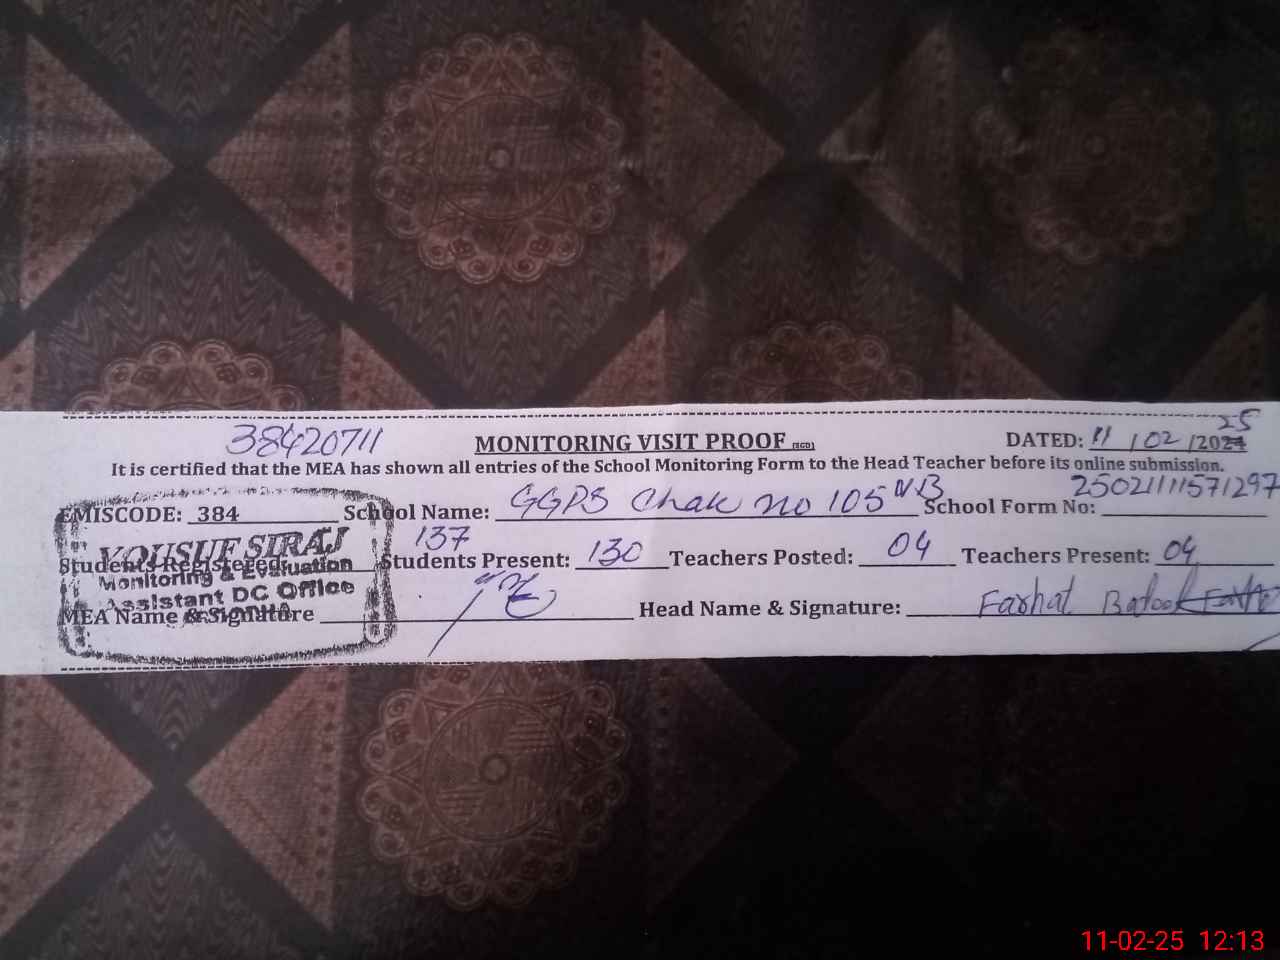 38420711 MONITORING VISIT PROOF (SGD) DATED: 11 / 02 /2024 25
It is certified that the MEA has shown all entries of the School Monitoring Form to the Head Teacher before its online submission.
EMISCODE: 384 School Name: GGPS Chak no 105 NB School Form No: 25021111571297
Students Registered: 137 Students Present: 130 Teachers Posted: 04 Teachers Present: 04
MEA Name & Signature Head Name & Signature: Farhat Batool
YOUSUF SIRAJ
Monitoring & Evaluation
Assistant DC Office
11-02-25 12:13